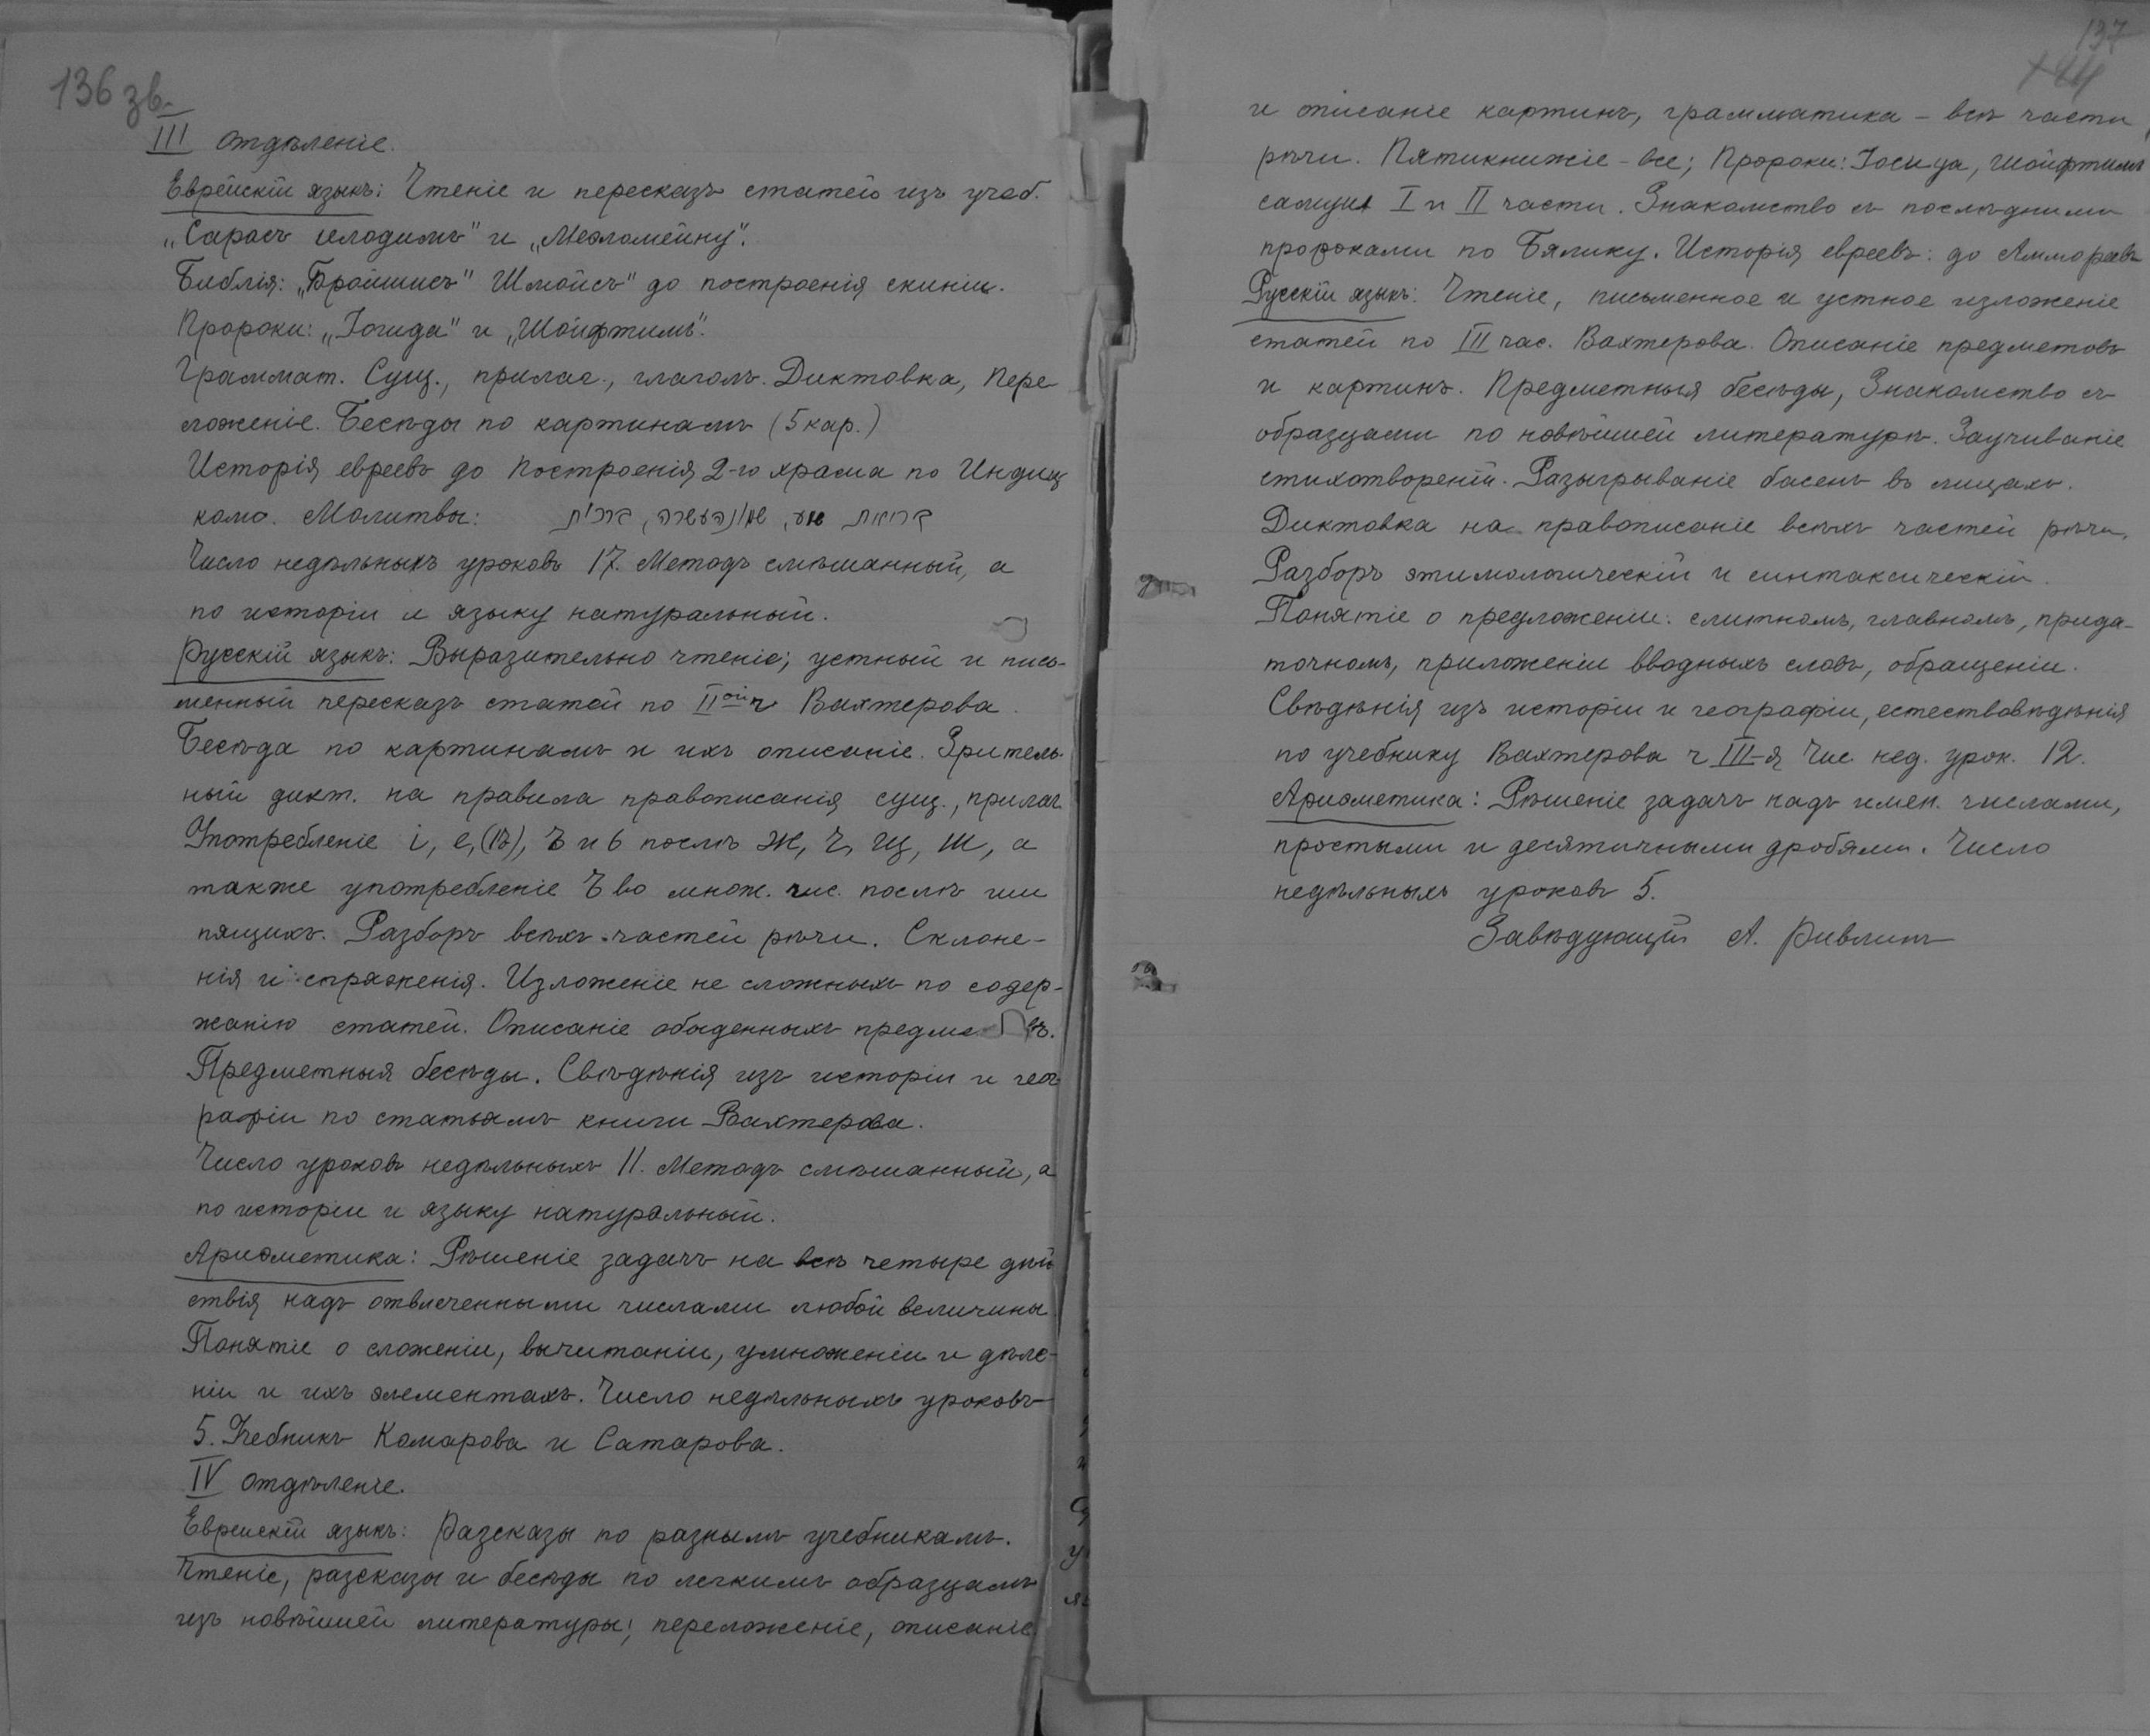 136 зв.
III отдѣленіе.
Еврейскій языкъ: Чтеніе и пересказъ статей изъ учеб.
и „
Библія: „Брейшисъ" Шмойсъ" до построенія скиніи.
Пророки: и „Шойфтимъ".
Граммат. Сущ., прилаг., глаголъ. Диктовка, Пере
ложеніе. Бесѣды по картинамъ (5 кар.)
Исторія евреевъ до построенія 2-го храма по Индиц
кому. Молитвы: קריאת שמע, שמונה עשרה,
Число недѣльныхъ уроковъ 17. Методъ смѣшанный, а
по исторіи и языку натуральный.
Русскій языкъ: Выразительно чтеніе; устный и пись-
менный пересказъ статей по II ой ч Вахтерова.
Бесѣда по картинамъ и ихъ описаніе. Зритель-
ный дикт. на правила правописанія сущ., прилаг.
Употребленіе і, е, (ѣ), Ъ и Ь послѣ Ж, Ч, Щ, Ш, а
также употребленіе Ъ во множ. чис. послѣ ши
пящихъ. Разборъ всѣхъ частей рѣчи. Склоне-
нія и спряженія. Изложеніе не сложныхъ по содер-
жанію статей. Описаніе обыденныхъ
Предметныя бесѣды. Свѣдѣнія изъ исторіи и гео
рафіи по статьямъ книги Вахтерова.
Число уроковъ недѣльныхъ 11. Методъ смѣшанный, а
по исторіи и языку натуральный.
Ариѳметика: Рѣшеніе задачъ на всѣ четыре дѣй
ствія надъ отвлеченными числами любой величины.
Понятіе о сложеніи, вычитаніи, умноженіи и дѣле-
ніи и ихъ элементахъ. Число недѣльныхъ уроковъ
5. Учебникъ Комарова и Сатарова.
IV отдѣленіе.
Еврейскій языкъ: Разсказы по разнымъ учебникамъ.
Чтеніе, разсказы и бесѣды по легкимъ образцамъ
изъ новѣйшей литературы; переложеніе, описаніе
137
и описаніе картинъ, грамматика - всѣ части
рѣчи. Пятикнижіе - все; Пророки: Шойфтимъ
I и II части. Знакомство съ послѣдними
пророками по Бялику. Исторія евреевъ: до Аммореевъ
Русскій языкъ: Чтеніе, письменное и устное изложеніе
статей по III час. Вахтерова. Описаніе предметовъ
и картинъ. Предметныя бесѣды, Знакомство съ
образцами по новѣйшей литературѣ. Заучиваніе
стихотвореній. Разыгрываніе басенъ въ лицахъ.
Диктовка на правописаніе всѣхъ частей рѣчи.
Разборъ этимологическій и синтаксическій.
Понятіе о предложеніи: слитномъ, главномъ, прида-
точномъ, приложеніи вводныхъ словъ, обращеніи.
Свѣдѣнія изъ исторіи и географіи, естествовѣдѣнія
по учебнику Вахтерова ч III-я Чис. нед. урок. 12.
Ариѳметика: Рѣшеніе задачъ надъ имен. числами,
простыми и десятичными дробями. Число
недѣльныхъ уроковъ 5.
Завѣдующій А. Ривлинъ